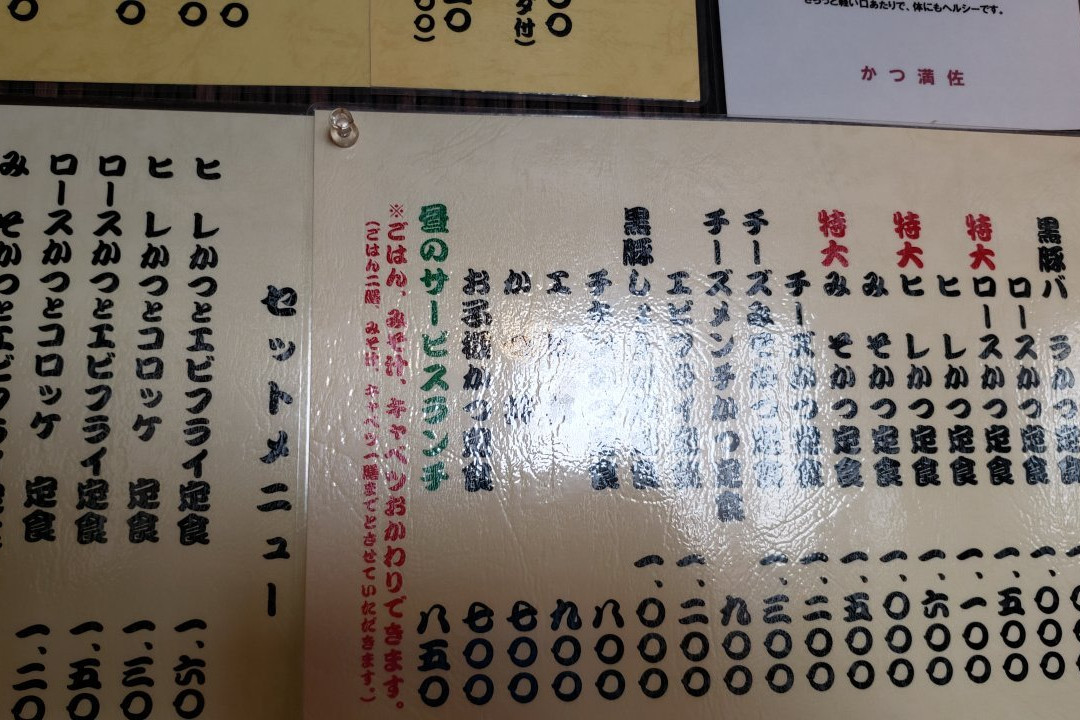 さらっと軽い口あたりで、体にもヘルシーです。
かつ満佐
黒豚バラかつ定食
ロースかつ定食 一、〇〇〇
特大ロースかつ定食 一、五〇〇
ヒレかつ定食 一、一〇〇
特大ヒレかつ定食 一、六〇〇
みそかつ定食 一、〇〇〇
特大みそかつ定食 一、五〇〇
チーズかつ定食 一、二〇〇
チーズみそかつ定食 一、三〇〇
チーズメンチかつ定食 九〇〇
エビフライ定食 一、二〇〇
黒豚しょうが 一、〇〇〇
八〇〇
九〇〇
七〇〇
お子様かつ定食 七〇〇
昼のサービスランチ 八五〇
※ごはん、みそ汁、キャベツおかわりできます。
(ごはん二膳、みそ汁、キャベツ一膳までとさせていただきます。)
セットメニュー
ヒレかつとエビフライ定食 一、六〇
ヒレかつとコロッケ 定食 一、三〇
ロースかつとエビフライ定食 一、五〇
ロースかつとコロッケ 定食 一、二〇
みそかつとエビフラ